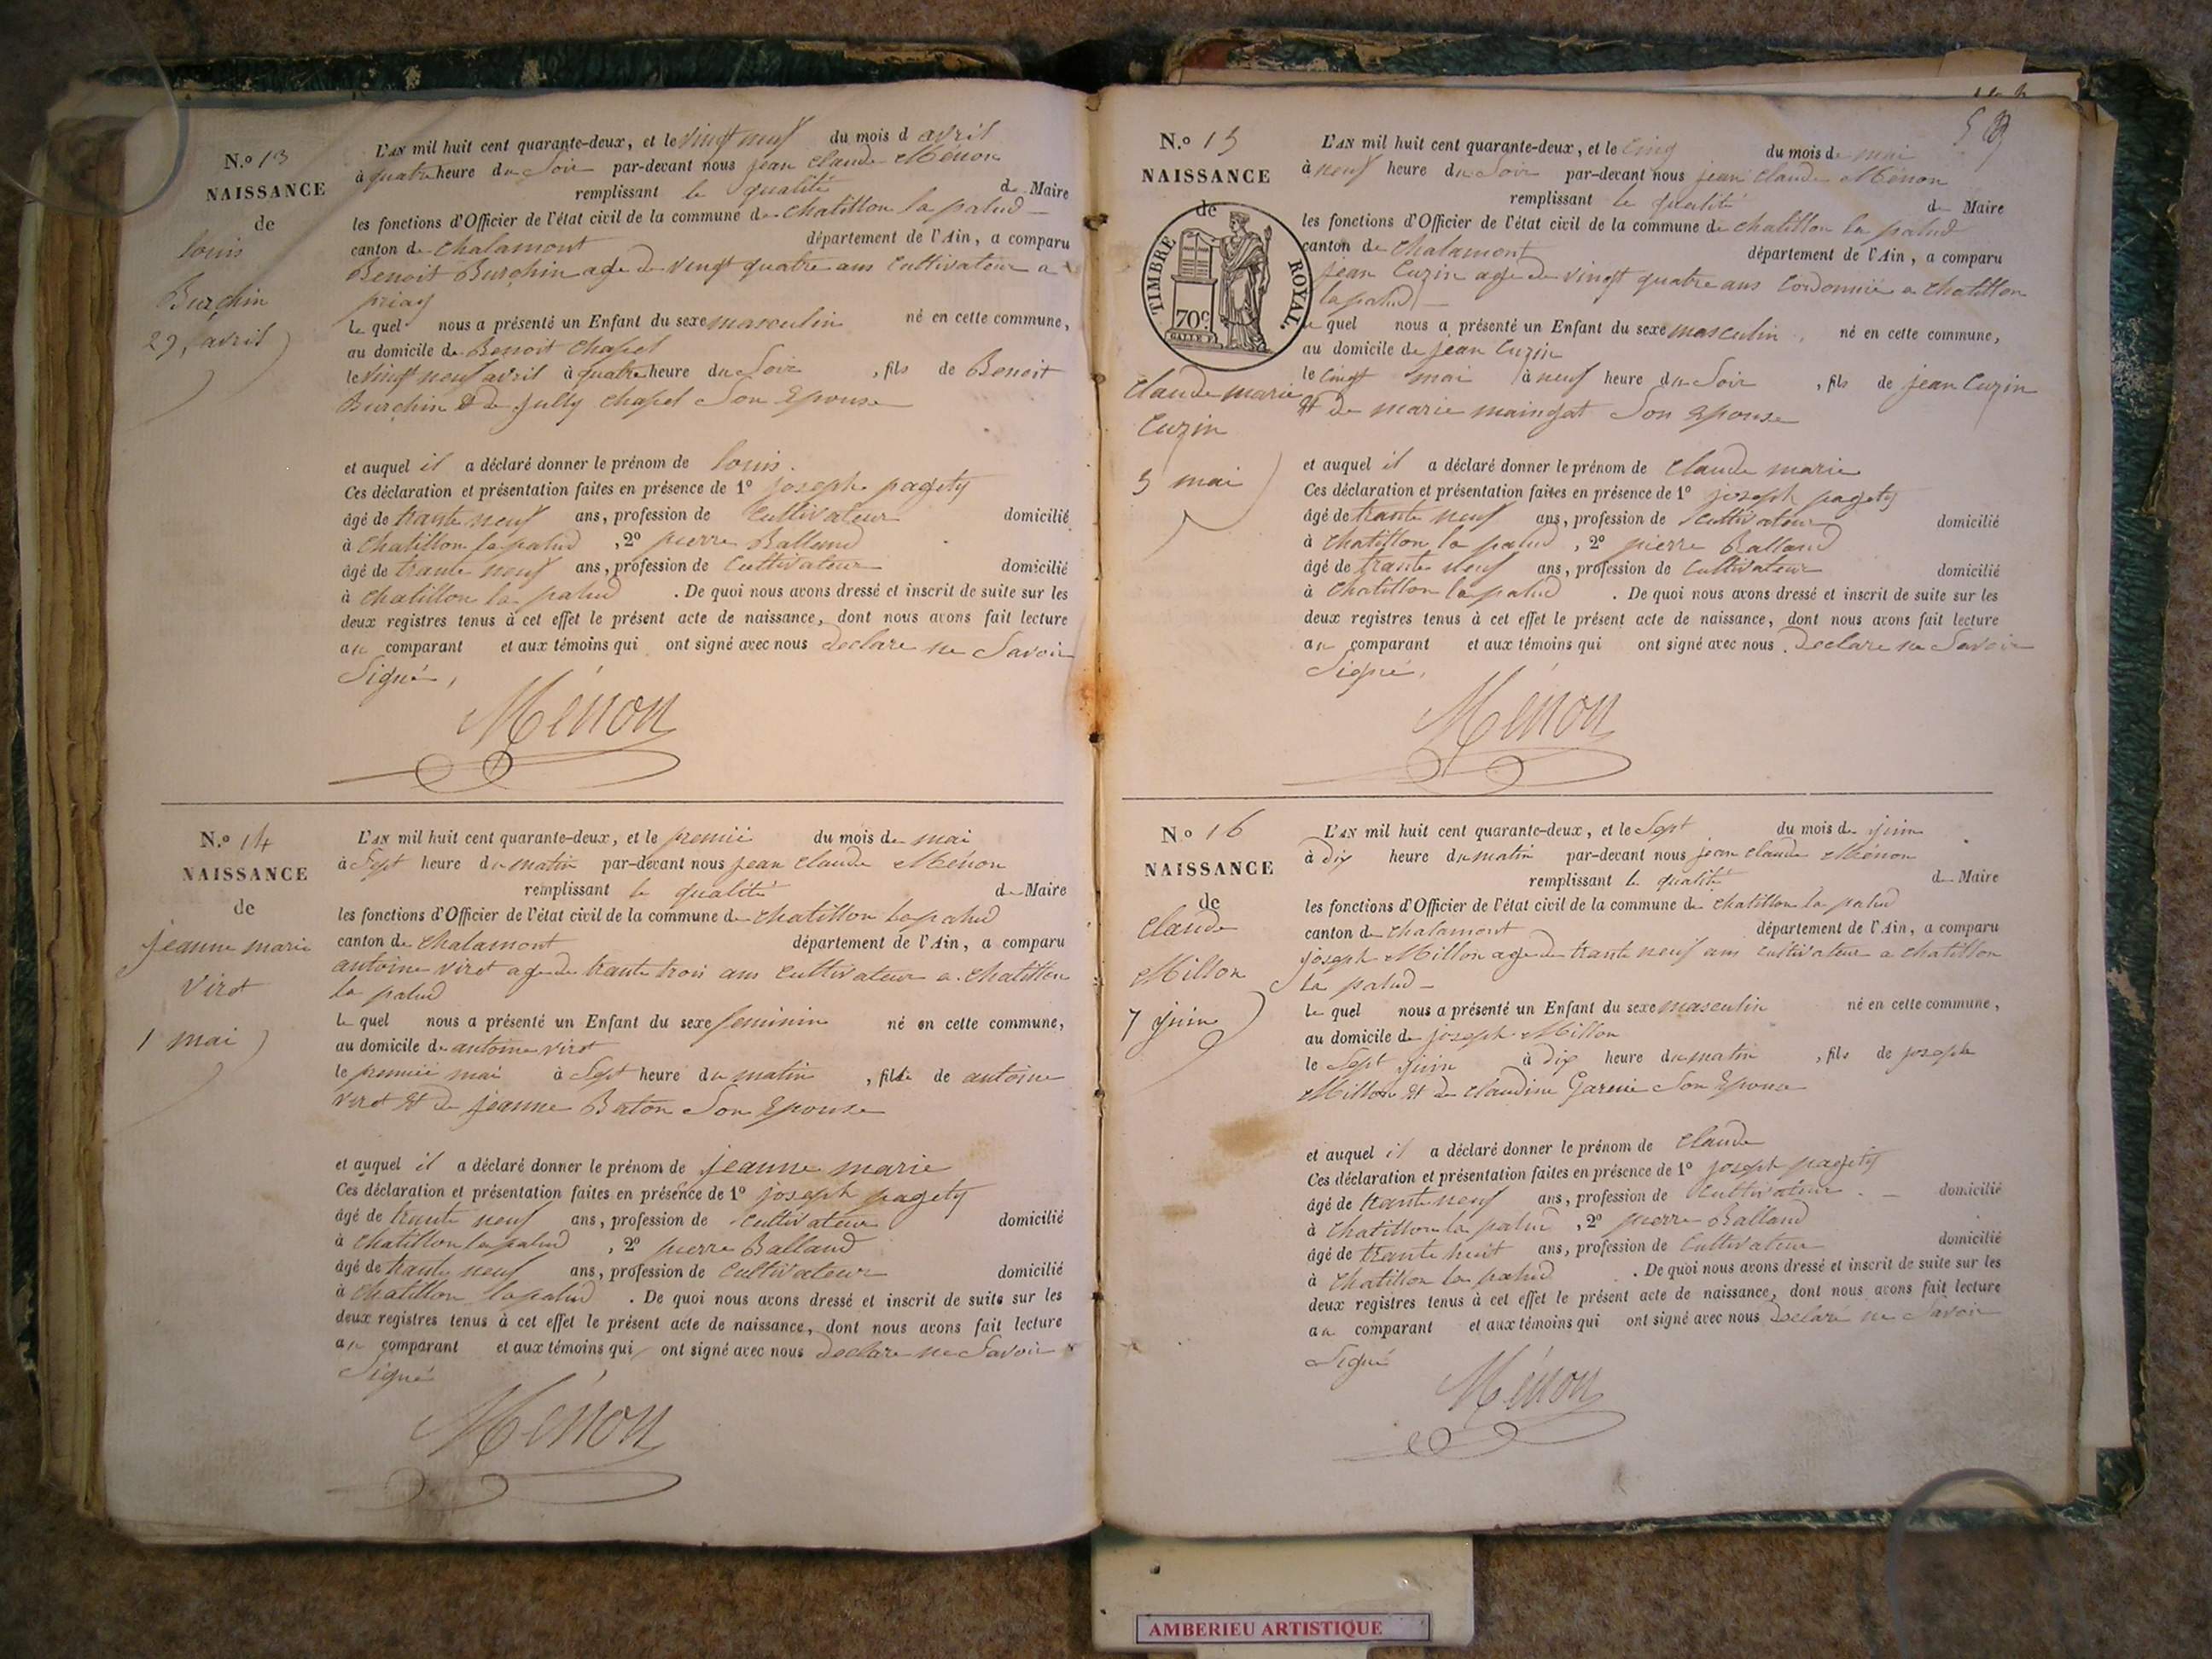 N.o 13
NAISSANCE
de
louis
Burchin
29, avril
L'AN mil huit cent quarante-deux, et le vingt neuf du mois d avril
à quatre heure du Soir par-devant nous jean claude Ménon
remplissant la qualité de Maire
les fonctions d'Officier de l'état civil de la commune de chatillon la palud
canton de chalamont département de l'Ain, a comparu
Benoit Burchin age de vingt quatre ans Cultivateur a
priay
le quel nous a présenté un Enfant du sexe masculin né en cette commune,
au domicile de Benoit chapel
le vingt neuf avril à quatre heure du Soir, fils de Benoit
Burchin et de jully chapel Son Epouse
et auquel il a déclaré donner le prénom de louis.
Ces déclaration et présentation faites en présence de 1º joseph pagety
âgé de trante neuf ans, profession de Cultivateur domicilié
à chatillon la palud, 2º pierre Balland
âgé de trante neuf ans, profession de Cultivateur domicilié
à chatillon la palud. De quoi nous avons dressé et inscrit de suite sur les
deux registres tenus à cet effet le présent acte de naissance, dont nous avons fait lecture
au comparant et aux témoins qui ont signé avec nous declare ne Savoir
Signé,
Ménon
N.o 14
NAISSANCE
de
jeanne marie
virot
1 mai
L'AN mil huit cent quarante-deux, et le premié du mois de mai
à Sept heure du matin par-devant nous jean claude Ménon
remplissant la qualité de Maire
les fonctions d'Officier de l'état civil de la commune de chatillon la palud
canton de chalamont département de l'Ain, a comparu
antoine virot age de trante trois ans cultivateur a chatillon
la palud
le quel nous a présenté un Enfant du sexe feminin né en cette commune,
au domicile de antoine virot
le premié mai à Sept heure du matin, fille de antoine
virot et de jeanne Baton Son Epouse
et auquel il a déclaré donner le prénom de jeanne marie
Ces déclaration et présentation faites en présence de 1º joseph pagety
âgé de trante neuf ans, profession de Cultivateur domicilié
à chatillon la palud, 2º pierre Balland
âgé de trante neuf ans, profession de Cultivateur domicilié
à chatillon la palud. De quoi nous avons dressé et inscrit de suite sur les
deux registres tenus à cet effet le présent acte de naissance, dont nous avons fait lecture
au comparant et aux témoins qui ont signé avec nous declare ne Savoir
Signé
Ménon
N.o 15
NAISSANCE
de
TIMBRE ROYAL.
70c.
claude marie
Cuzin
5 mai
L'AN mil huit cent quarante-deux, et le cinq du mois de mai
à neuf heure du Soir par-devant nous jean claude Ménon
remplissant la qualité de Maire
les fonctions d'Officier de l'état civil de la commune de chatillon la palud
canton de chalamont département de l'Ain, a comparu
jean Cuzin age de vingt quatre ans Cordonnié a chatillon
la palud
le quel nous a présenté un Enfant du sexe masculin, né en cette commune,
au domicile de jean Cuzin
le cinq mai à neuf heure du Soir, fils de jean Cuzin
et de marie maingat Son epouse
et auquel il a déclaré donner le prénom de claude marie
Ces déclaration et présentation faites en présence de 1º joseph pagety
âgé de trante neuf ans, profession de Cultivateur domicilié
à chatillon la palud, 2º pierre Balland
âgé de trante neuf ans, profession de Cultivateur domicilié
à chatillon la palud. De quoi nous avons dressé et inscrit de suite sur les
deux registres tenus à cet effet le présent acte de naissance, dont nous avons fait lecture
au comparant et aux témoins qui ont signé avec nous Declare ne Savoir
Signé,
Ménon
No 16
NAISSANCE
de
claude
Millon
7 juin
L'AN mil huit cent quarante-deux, et le Sept du mois de juin
à dix heure du matin par-devant nous jean claude Ménon
remplissant la qualité de Maire
les fonctions d'Officier de l'état civil de la commune de chatillon la palud
canton de chalamont département de l'Ain, a comparu
joseph Millon age de trante neuf ans cultivateur a chatillon
la palud
le quel nous a présenté un Enfant du sexe masculin né en cette commune,
au domicile de joseph Millon
le Sept juin à dix heure du matin, fils de joseph
Millon et de claudine Son Epouse
et auquel il a déclaré donner le prénom de claude
Ces déclaration et présentation faites en présence de 1º joseph pagety
âgé de trante neuf ans, profession de Cultivateur domicilié
à chatillon la palud, 2º pierre Balland
âgé de trante huit ans, profession de Cultivateur domicilié
à chatillon la palud. De quoi nous avons dressé et inscrit de suite sur les
deux registres tenus à cet effet le présent acte de naissance, dont nous avons fait lecture
au comparant et aux témoins qui ont signé avec nous Declaré ne Savoir
Signé
Ménon
AMBERIEU ARTISTIQUE